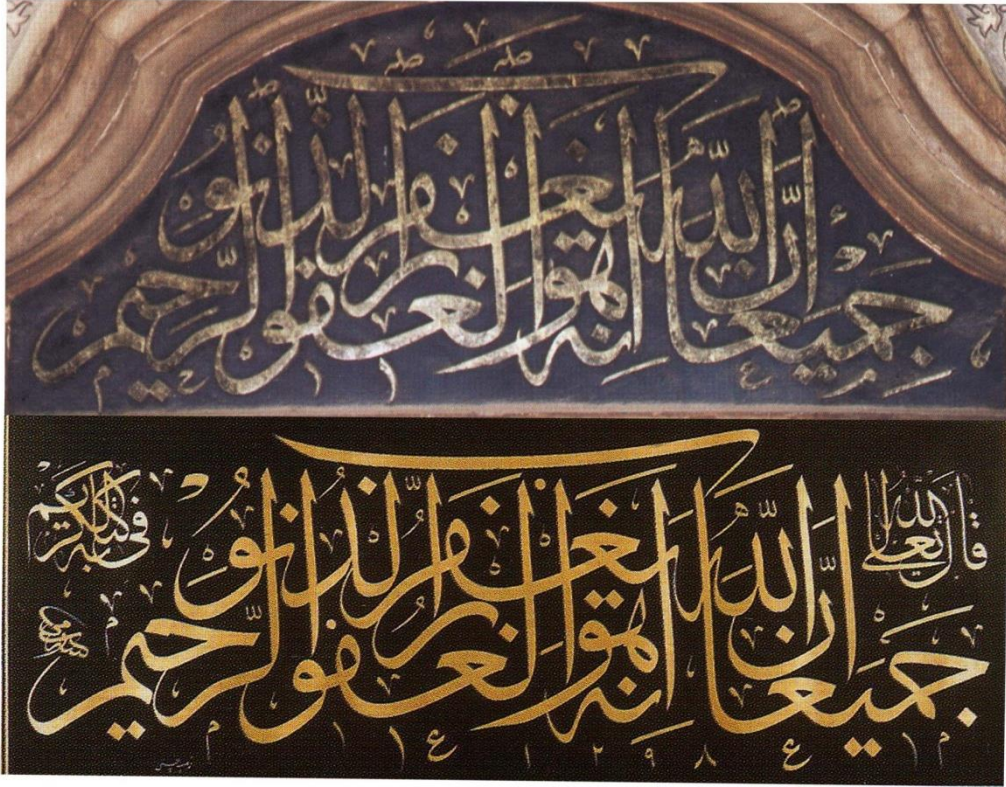 ان الله يغفر الذنوب
جميعا انه هو الغفور الرحيم
قال الله تعالى
في كتابه الكريم
ان الله يغفر الذنوب
جميعا انه هو الغفور الرحيم
١٢٩٨